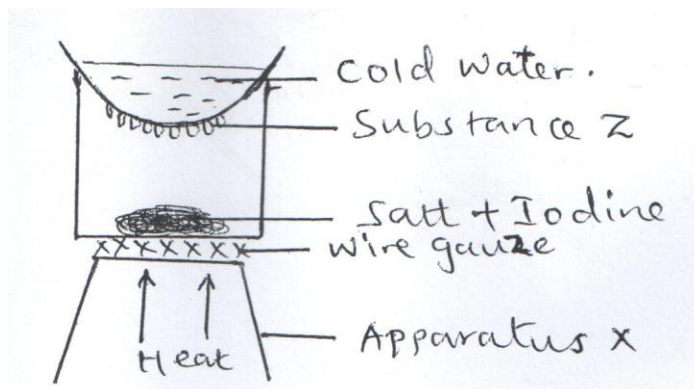 Cold water.
Substance Z
Salt + Iodine
wire gauze
Heat
Apparatus X